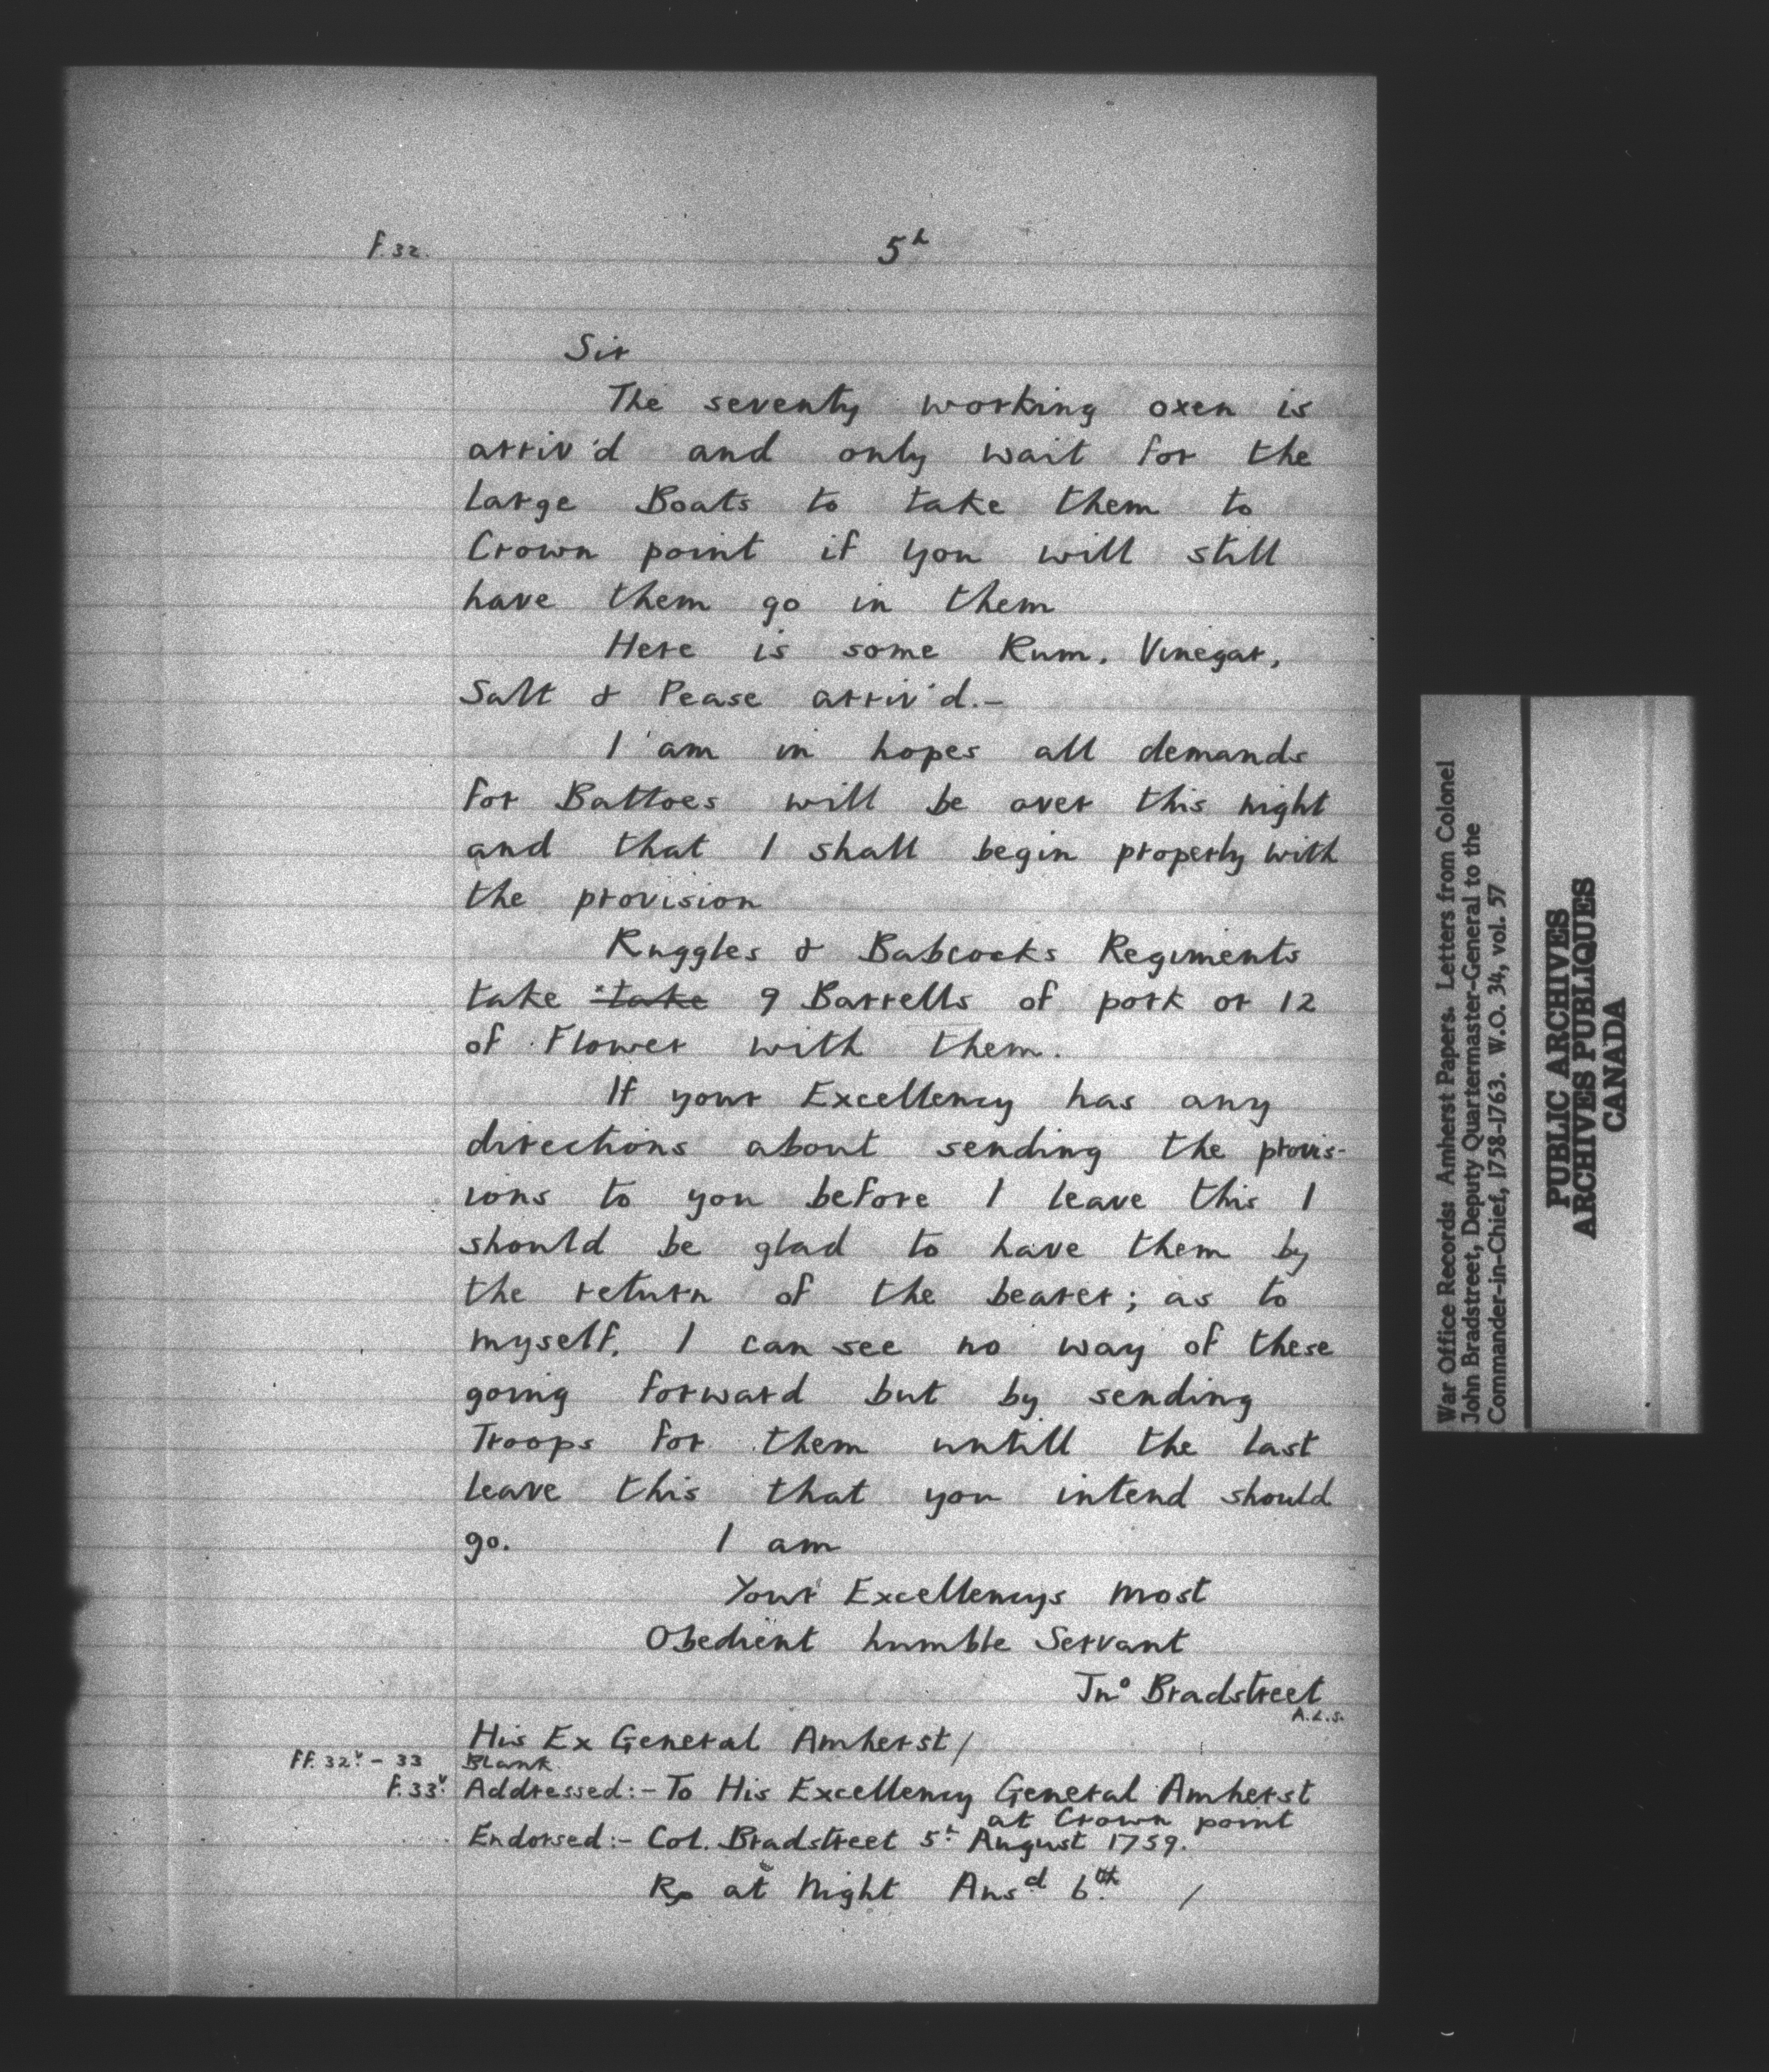 f. 32.
5h
Sir
The seventy working oxen is
arriv'd and only wait for the
large Boats to take them to
Crown point if you will still
have them go in them
Here is some Rum, Vinegar,
Salt & Pease arriv'd.-
I am in hopes all demands
for Battoes will be over this night
and that I shall begin properly with
the provision
Ruggles & Babcocks Regiments
take take 9 Barrells of pork or 12
of Flower with them.
If your Excellency has any
directions about sending the provis-
ions to you before I leave this I
should be glad to have them by
the return of the bearer; as to
myself, I can see no way of these
going forward but by sending
Troops for them untill the last
leave this that you intend should
go. I am
Your Excellencys most
Obedient humble Servant
Jno Bradstreet
A.L.S.
His Ex General Amherst/
ff. 32v. - 33 Blank
f. 33v. Addressed:- To His Excellency General Amherst
at Crown point
Endorsed:- Col. Bradstreet 5h August 1759.
Rp at Night Ansd 6th /
War Office Records: Amherst Papers. Letters from Colonel
John Bradstreet, Deputy Quartermaster-General to the
Commander-in-Chief, 1758-1763. W.O. 34, vol. 57
PUBLIC ARCHIVES
ARCHIVES PUBLIQUES
CANADA